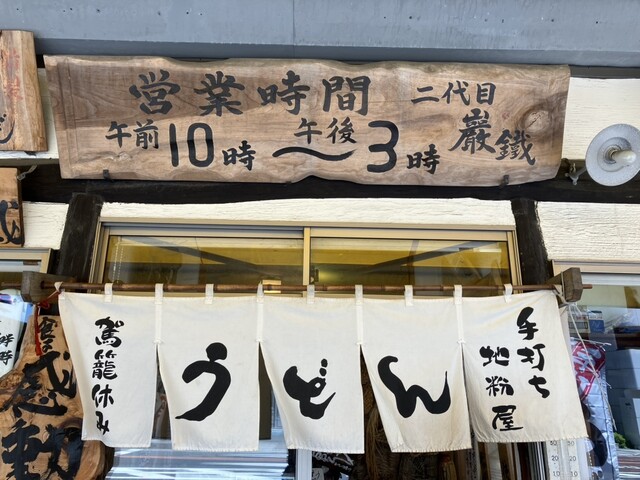 営業時間
午前10時〜午後3時
二代目
巖鐵
手打ち
地粉屋
うどん
駕籠休み
感動